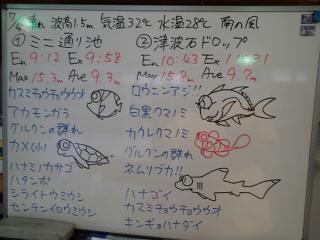 7/4 晴れ 波高1.5m 気温32℃ 水温28℃ 南の風
①ミニ通り池
En 9:12 Ex 9:58
Max 15.3m Ave 9.3m
カスミチョウチョウウオ
アカモンガラ
グルクンの群れ
カメ(小)
ハナミノカサゴ
ハタンポ
シライトウミウシ
センテンイロウミウシ
②津波石ドロップ
En 10:43 Ex 11:31
Max 15.8m Ave 9.7m
ロウニンアジ!!
白黒クマノミ
カクレクマノミ
グルクンの群れ
ネムリブカ!!
ハナゴイ
カスミチョウチョウウオ
キンギョハナダイ